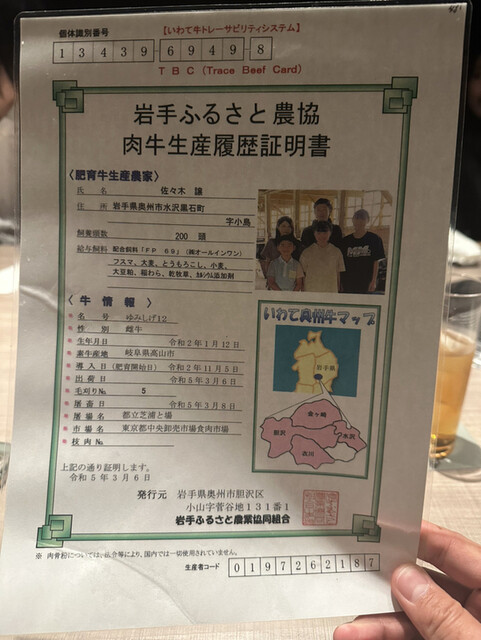 個体識別番号
【いわて牛トレーサビリティシステム】
13439-6949-8
TBC (Trace Beef Card)
岩手ふるさと農協
肉牛生産履歴証明書
〈肥育牛生産農家〉
氏 名 佐々木 譲
住 所 岩手県奥州市水沢黒石町
字小島
飼養頭数 200 頭
給与飼料 配合飼料「FP 69」(㈱オールインワン)
フスマ、大麦、とうもろこし、小麦、
大豆粕、稲わら、乾牧草、カルシウム添加剤
〈牛 情 報 〉
・名 号 ゆみしげ12
・性 別 雌牛
・生年月日 令和2年1月12日
・素牛産地 岐阜県高山市
・導入日(肥育開始日) 令和2年11月5日
・出荷日 令和5年3月6日
・毛刈りNo. 5
・屠畜日 令和5年3月8日
・屠場名 都立芝浦と場
・市場名 東京都中央卸売市場食肉市場
・枝肉No.
いわて奥州牛マップ
岩手県
金ヶ崎
胆沢
水沢
衣川
上記の通り証明します。
令和5年3月6日
発行元 岩手県奥州市胆沢区
小山字菅谷地131番1
岩手ふるさと農業協同組合
※ 肉骨粉については、法令等により、国内では一切使用されていません。
生産者コード 0197262187